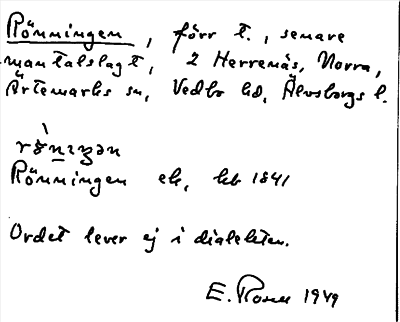 Rönningen, förr t., senare
mantalslagt, 2 Herrenäs, Norra,
Ärtemarks sn, Vedbo hd, Älvsborgs l.
Rönningen ek, hb 1841
Ordet lever ej i dialekten.
E. Rosen 1949